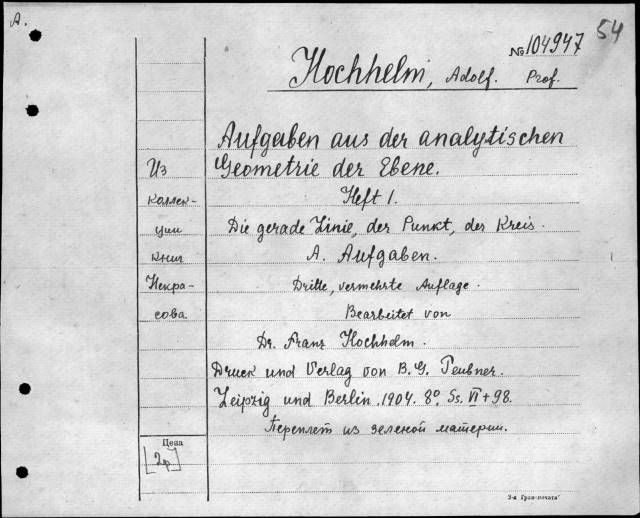 A.
54
№ 104947
Hochhelm, Adolf. Prof.
Aufgaben aus der analytischen
Geometrie der Ebene.
Heft 1.
Die gerade Linie, der Punkt, der Kreis.
A. Aufgaben.
Dritte, vermehrte Auflage.
Bearbeitet von
Dr. Franz Hochhelm.
Druck und Verlag von B. G. Teubner.
Leipzig und Berlin. 1904. 8º. Ss. VI + 98.
Переплет из зеленой материи.
Из
коллек-
ции
книг
Некра-
сова
Цена
[2р]